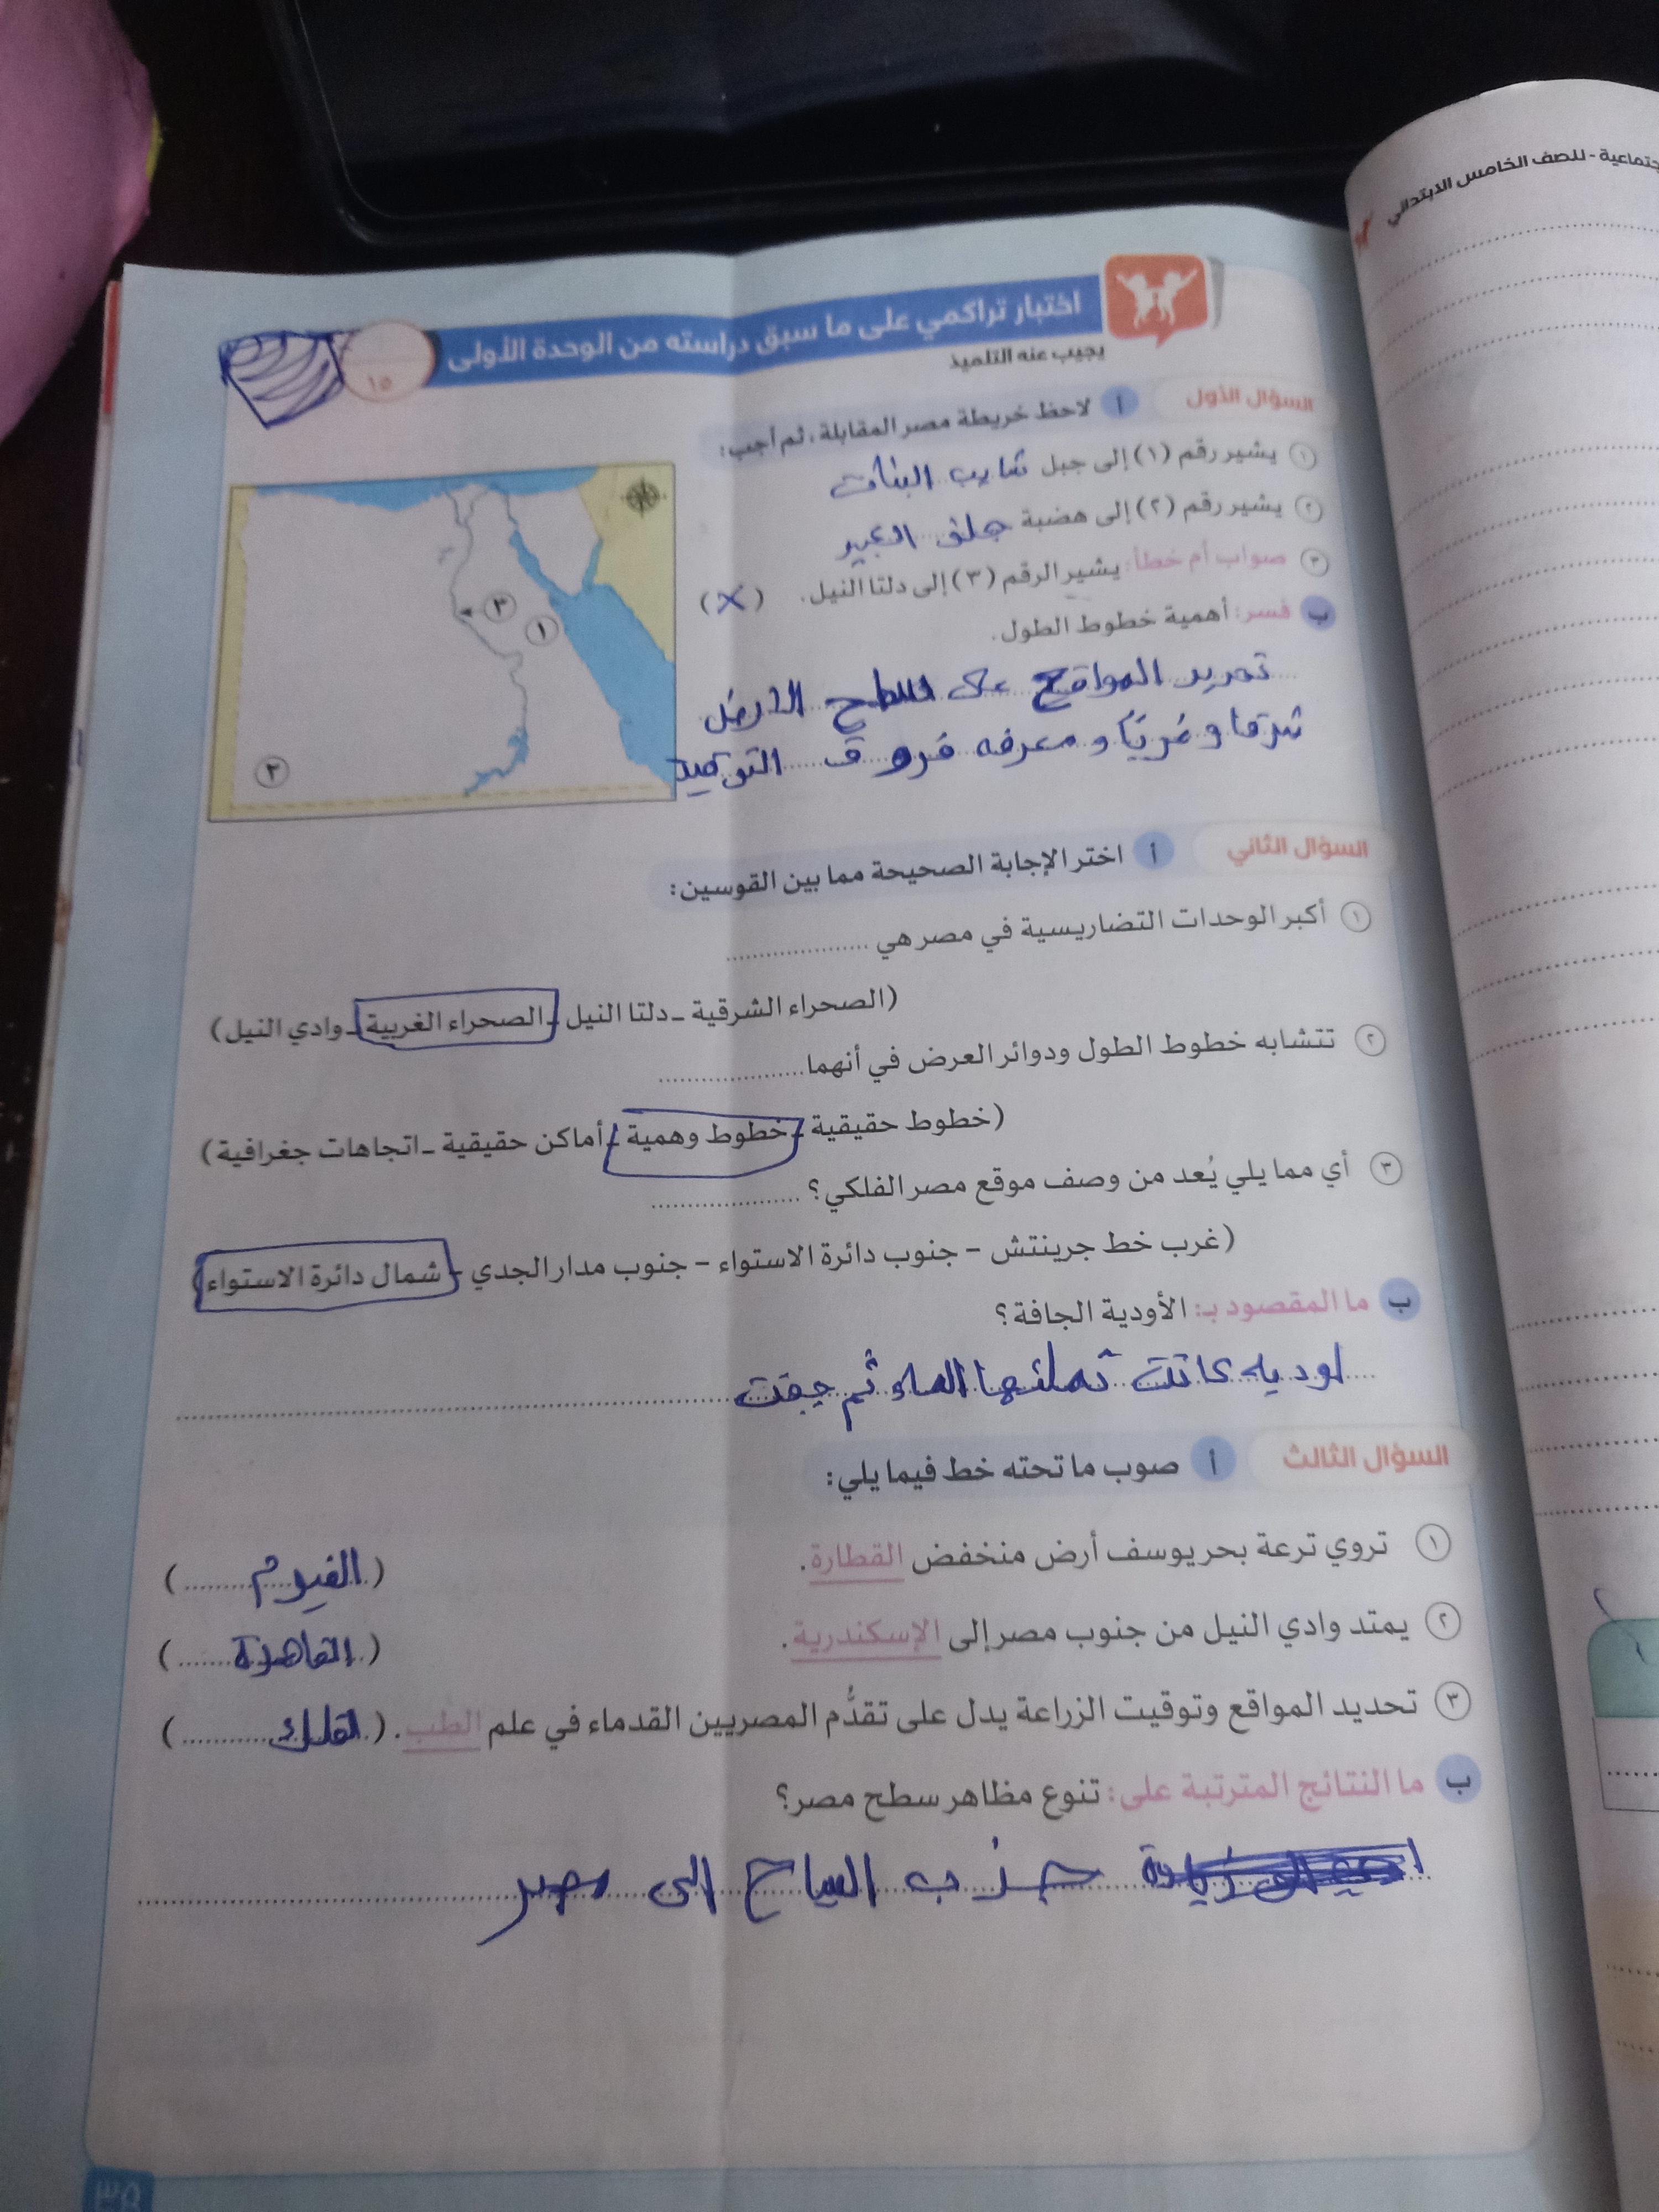 جتماعية - للصف الخامس الابتدائي
اختبار تراكمي على ما سبق دراسته من الوحدة الأولى
١٥
يجيب عنه التلميذ
السؤال الأول أ لاحظ خريطة مصر المقابلة، ثم أجب:
١ يشير رقم (١) إلى جبل شايب البنات
٢ يشير رقم (٢) إلى هضبة جلف الكبير
٣ صواب أم خطأ: يشير الرقم (٣) إلى دلتا النيل. (X)
ب فسر: أهمية خطوط الطول.
تحديد المواقع على سطح الارض
شرقا و غربًا و معرفه فروق التوقيت
٣
١
٢
السؤال الثاني أ اختر الإجابة الصحيحة مما بين القوسين:
١ أكبر الوحدات التضاريسية في مصر هي ....................
(الصحراء الشرقية - دلتا النيل - الصحراء الغربية - وادي النيل)
٢ تتشابه خطوط الطول ودوائر العرض في أنهما ....................
(خطوط حقيقية - خطوط وهمية - أماكن حقيقية - اتجاهات جغرافية)
٣ أي مما يلي يُعد من وصف موقع مصر الفلكي؟ ....................
(غرب خط جرينتش - جنوب دائرة الاستواء - جنوب مدار الجدي - شمال دائرة الاستواء)
ب ما المقصود بـ: الأودية الجافة؟
اوديه كانت تملئها الماء ثم جفت
السؤال الثالث أ صوب ما تحته خط فيما يلي:
١ تروي ترعة بحر يوسف أرض منخفض القطارة. (الفيوم)
٢ يمتد وادي النيل من جنوب مصر إلى الإسكندرية. (القاهرة)
٣ تحديد المواقع وتوقيت الزراعة يدل على تقدُّم المصريين القدماء في علم الطب. (الفلك)
ب ما النتائج المترتبة على: تنوع مظاهر سطح مصر؟
جذب السياح الى مصر
٣٥